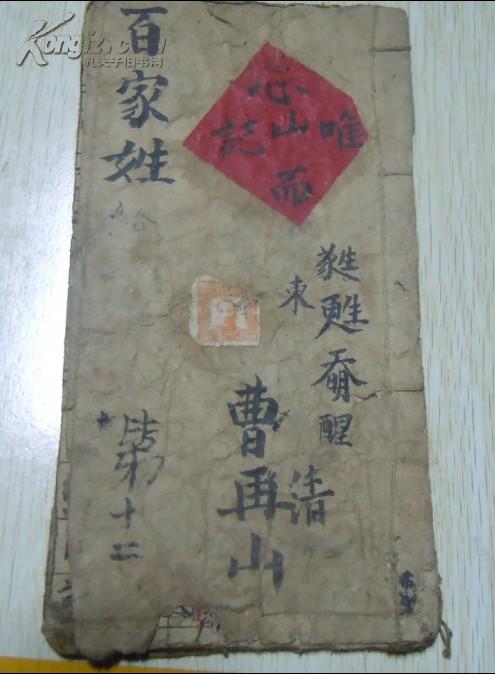 百家姓
第十二
忘山而
記
唯
甦
東
醒
清
曹再山
Kongfz.com
孔夫子旧书网